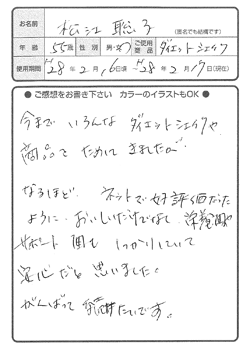 お名前 松江 聡子 (匿名でも結構です)
年齢 55歳 性別 男・女 ご使用商品 ダイエットシェイク
使用期間 H28年2月16日頃～H28年2月17日(現在)
●ご感想をお書き下さい カラーのイラストもOK●
今まで いろんな ダイエットシェイクや
商品を ためして きましたが
なるほど、ネットで好評価だった
ように、おいしいだけでなく 栄養
サポート面も しっかりしていて
安心だと思いました。
がんばって 続けたいです。